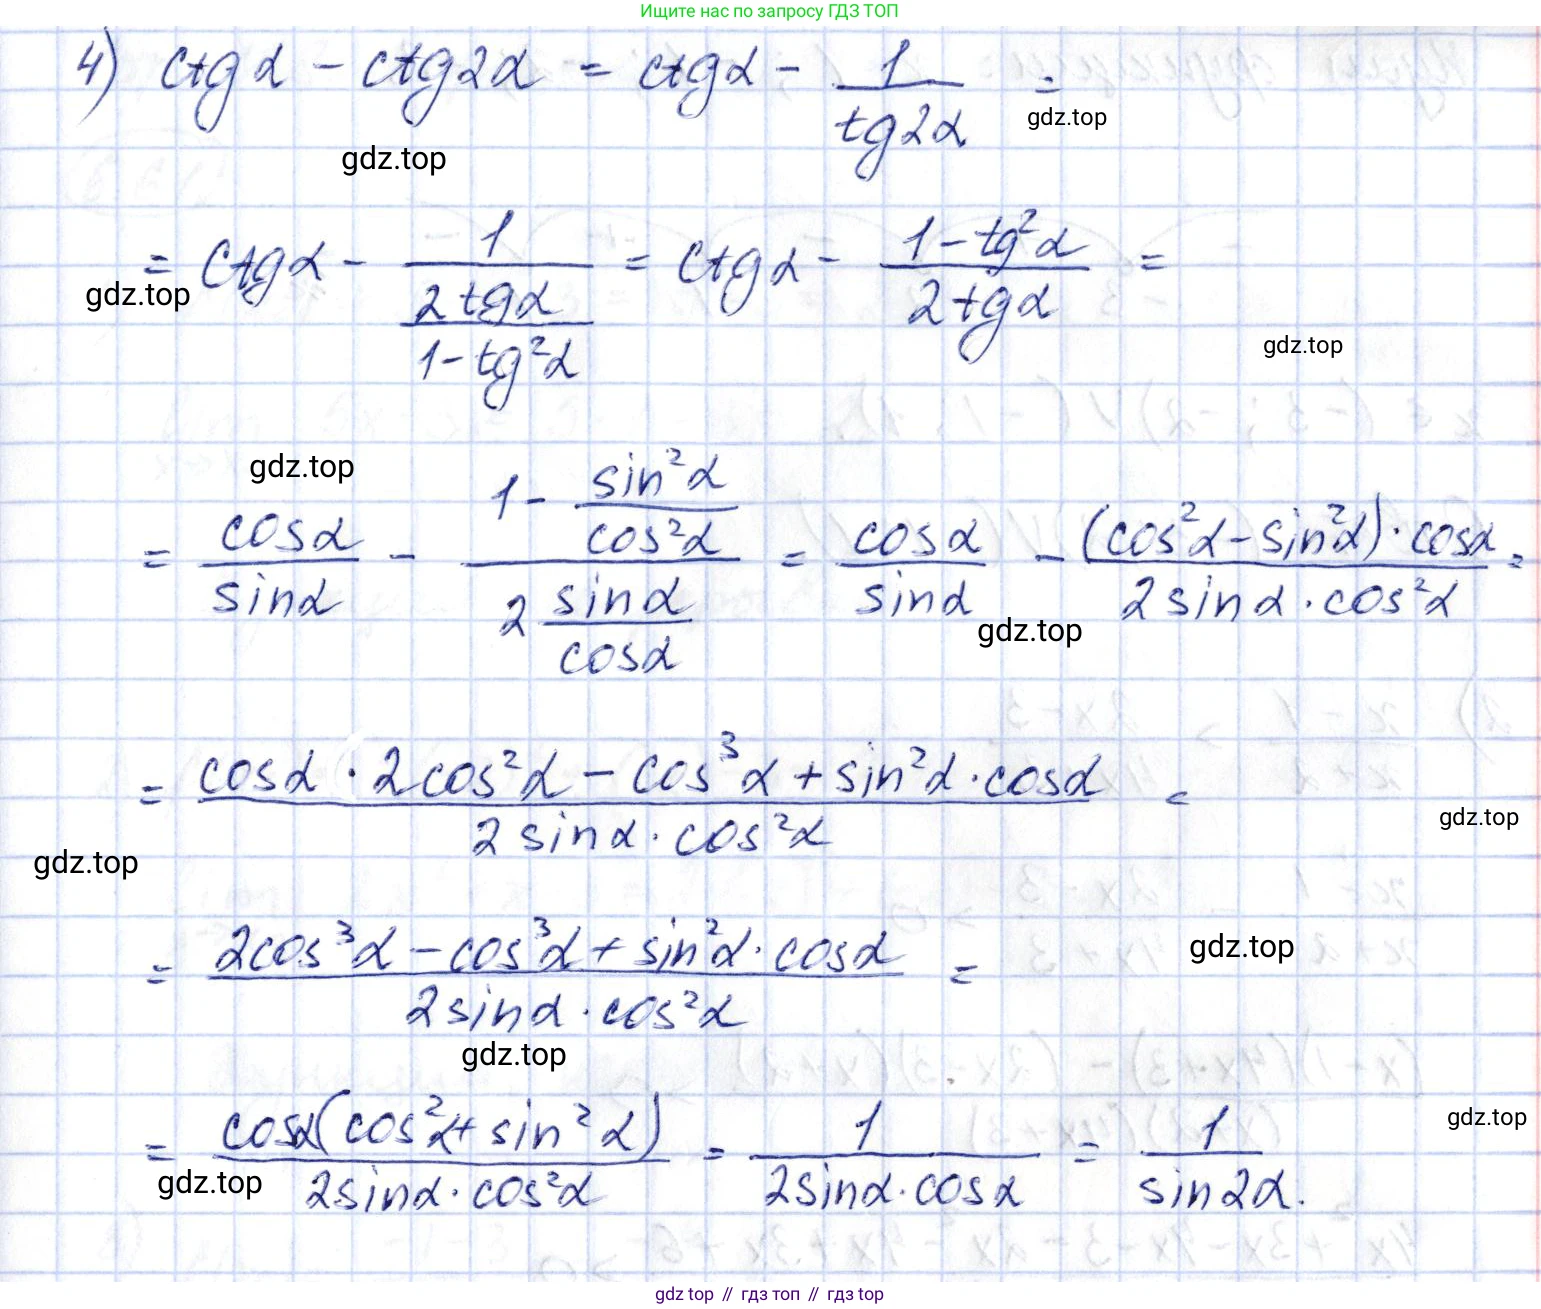 Ищите нас по запросу ГДЗ ТОП
4) ctgα - ctg2α = ctgα - 1/tg2α =
gdz.top
gdz.top
= ctgα - 1/(2tgα/(1-tg²α)) = ctgα - (1-tg²α)/(2tgα) =
gdz.top
gdz.top
gdz.top
= cosα/sinα - (1 - sin²α/cos²α)/(2 sinα/cosα) = cosα/sinα - (cos²α-sin²α)·cosα/(2sinα·cos²α) =
gdz.top
= (cosα·2cos²α - cos³α + sin²α·cosα)/(2sinα·cos²α) =
gdz.top
gdz.top
= (2cos³α - cos³α + sin²α·cosα)/(2sinα·cos²α) =
gdz.top
gdz.top
= cosα(cos²α + sin²α)/(2sinα·cos²α) = 1/(2sinα·cosα) = 1/sin2α.
gdz.top
gdz.top
gdz top // гдз топ // гдз top